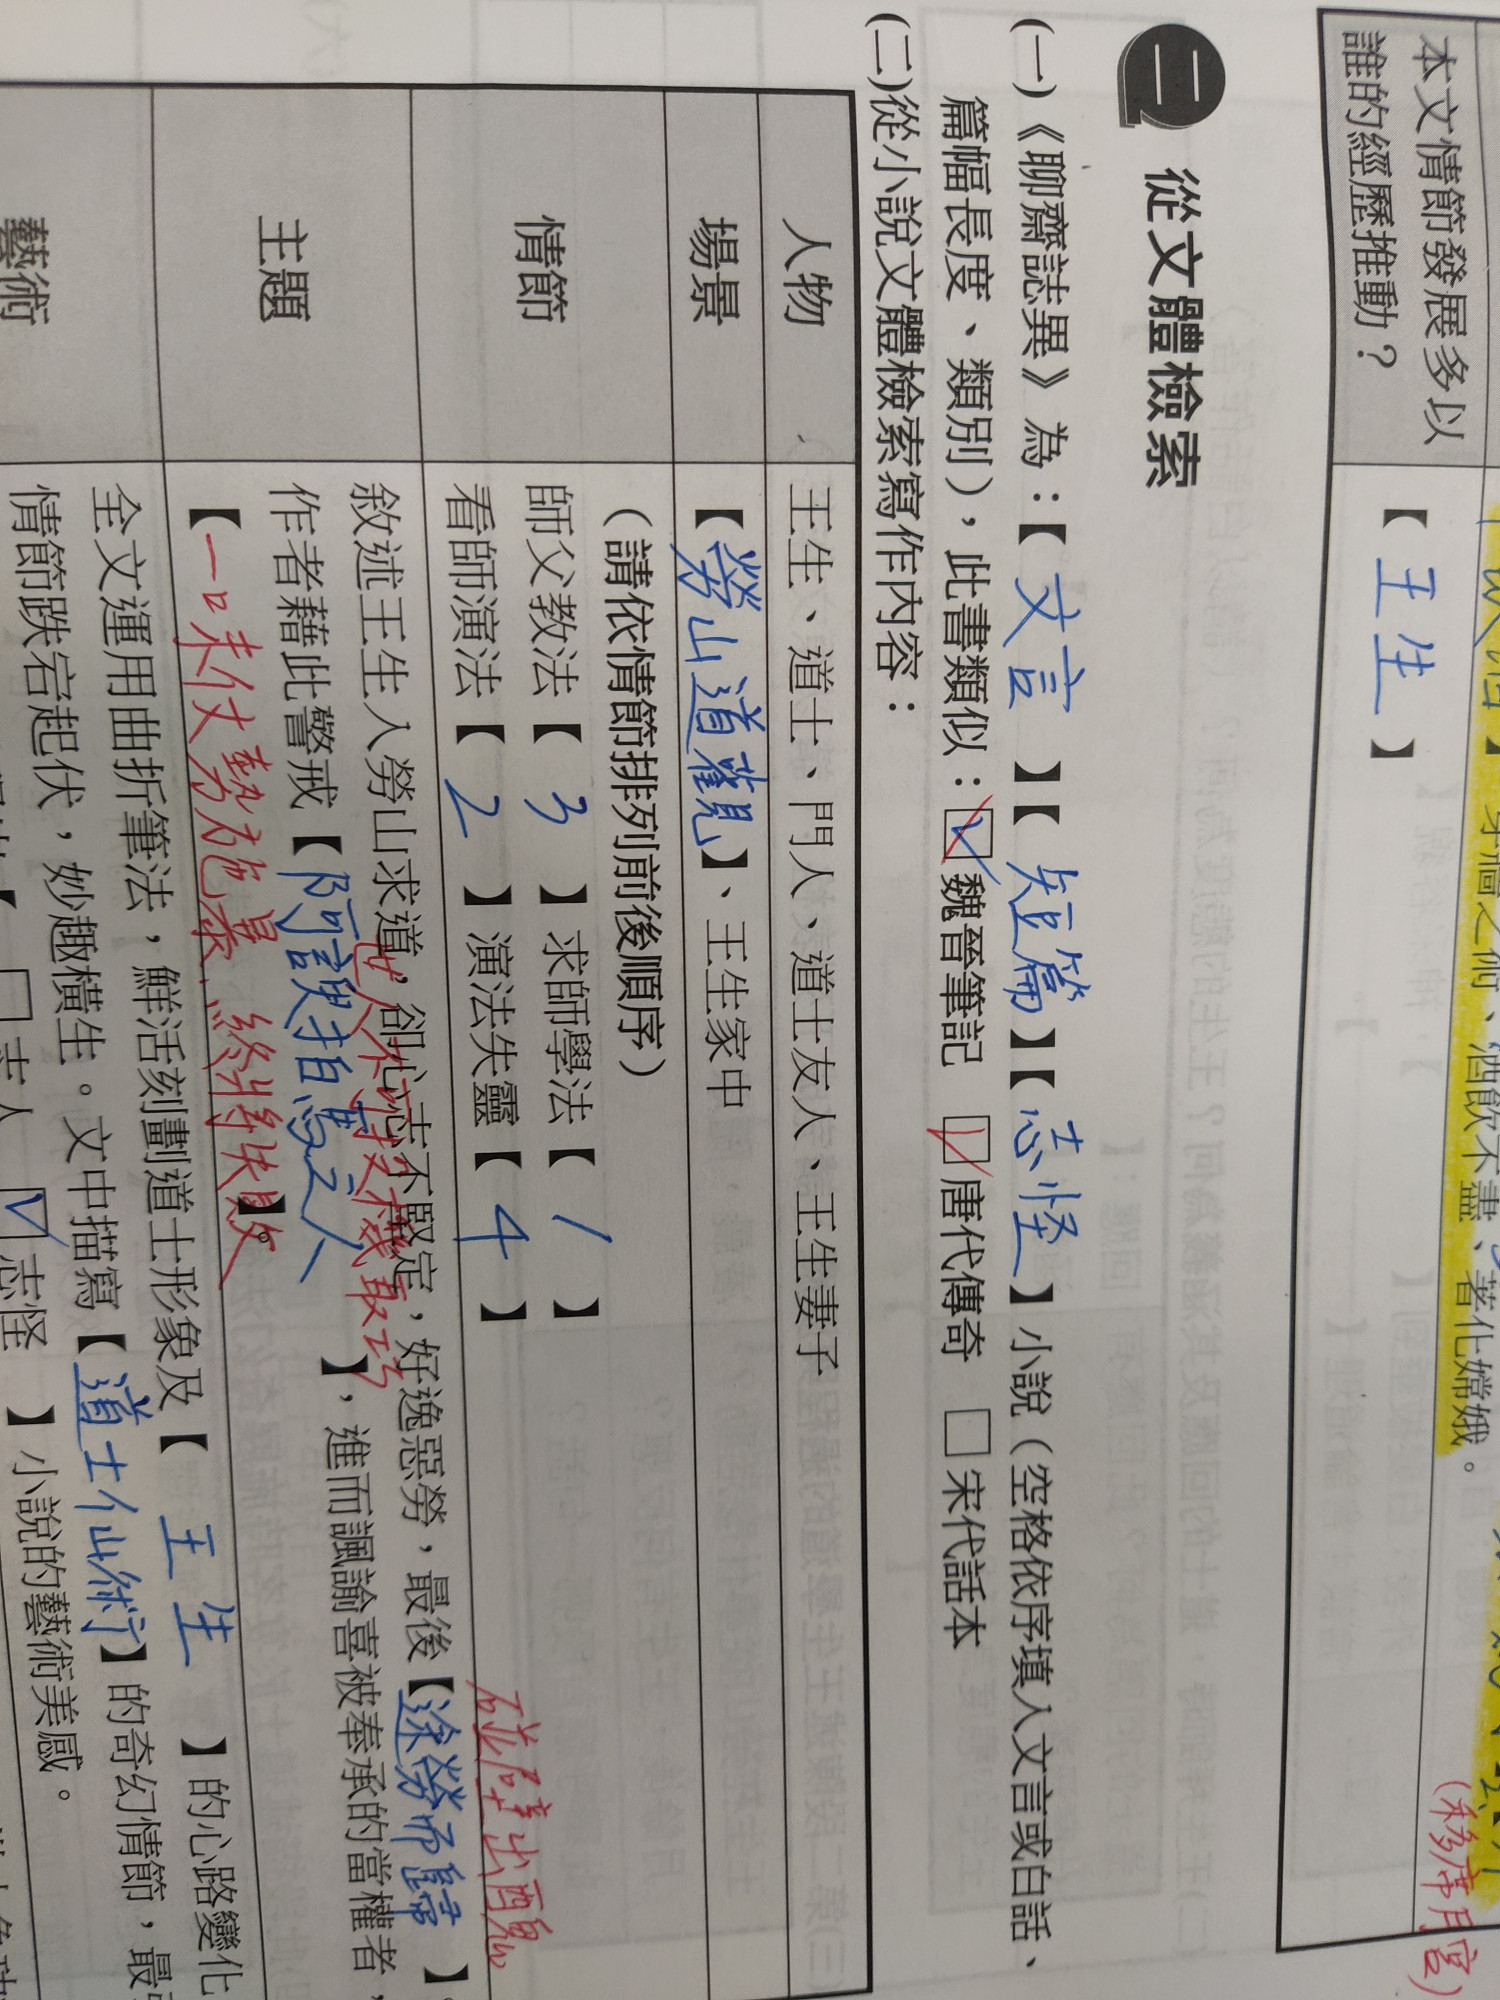 穿牆之術、酒飲不盡、著化嫦娥。
(移席月宮)
本文情節發展多以
誰的經歷推動？
【王生】
二 從文體檢索
(一)《聊齋誌異》為：【文言】【短篇】【志怪】小說（空格依序填入文言或白話、
篇幅長度、類別），此書類似：☑魏晉筆記 ☑唐代傳奇 □宋代話本
(二)從小說文體檢索寫作內容：
人物
王生、道士、門人、道士友人、王生妻子
場景
【勞山道觀】、王生家中
情節
（請依情節排列前後順序）
師父教法【3】求師學法【1】
看師演法【2】演法失靈【4】
碰壁出醜
主題
敘述王生入勞山求道，卻心志不堅定，好逸惡勞，最後【途勞而歸】。
世人不可投機取巧
作者藉此警戒【阿諛拍馬之人】，進而諷諭喜被奉承的當權者，
【一味仗勢施暴，終將失敗】。
藝術
全文運用曲折筆法，鮮活刻劃道士形象及【王生】的心路變化
情節跌宕起伏，妙趣橫生。文中描寫【道士仙術】的奇幻情節，最
☑志怪】小說的藝術美感。